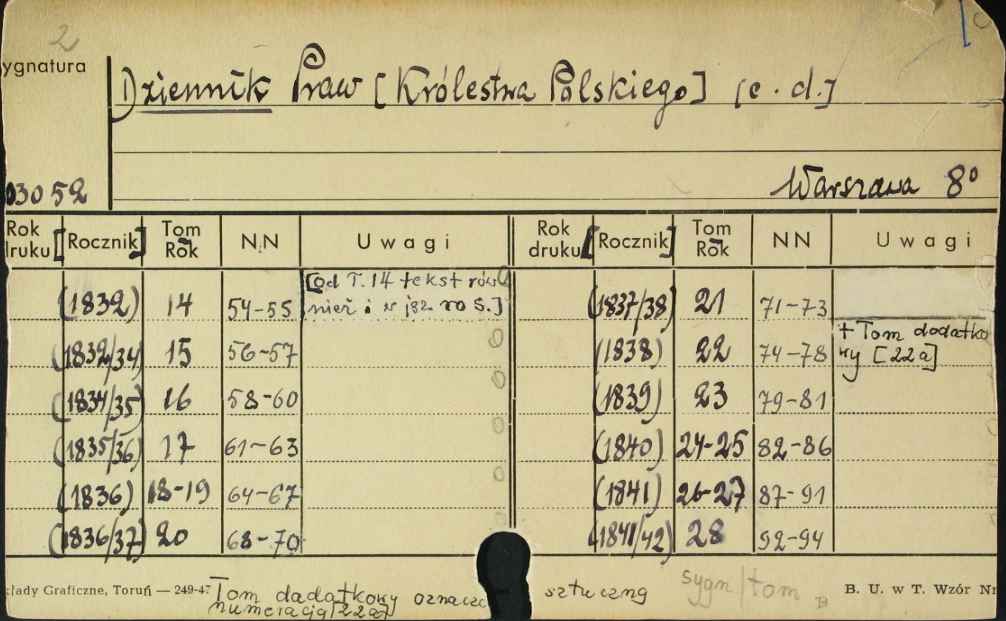 2
ygnatura
Dziennik Praw [Królestwa Polskiego] [c.d.]
03052
Warszawa 8°
Rok druku [Rocznik] Tom Rok NN Uwagi Rok druku [Rocznik] Tom Rok NN Uwagi
(1832) 14 54-55 [od T. 14 tekst rów (1837/38) 21 71-73
nież i w jęz. ros.]
(1832/34) 15 56-57 (1838) 22 74-78 + Tom dodatko
wy [22a]
(1834/35) 16 58-60 (1839) 23 79-81
(1835/36) 17 61-63 (1840) 24-25 82-86
(1836) 18-19 64-67 (1841) 26-27 87-91
(1836/37) 20 68-70 (1841/42) 28 92-94
łady Graficzne, Toruń — 249-47 Tom dadatkowy oznacz sztuczną sygn/tom B. U. w T. Wzór Nr
numeracją [22a]